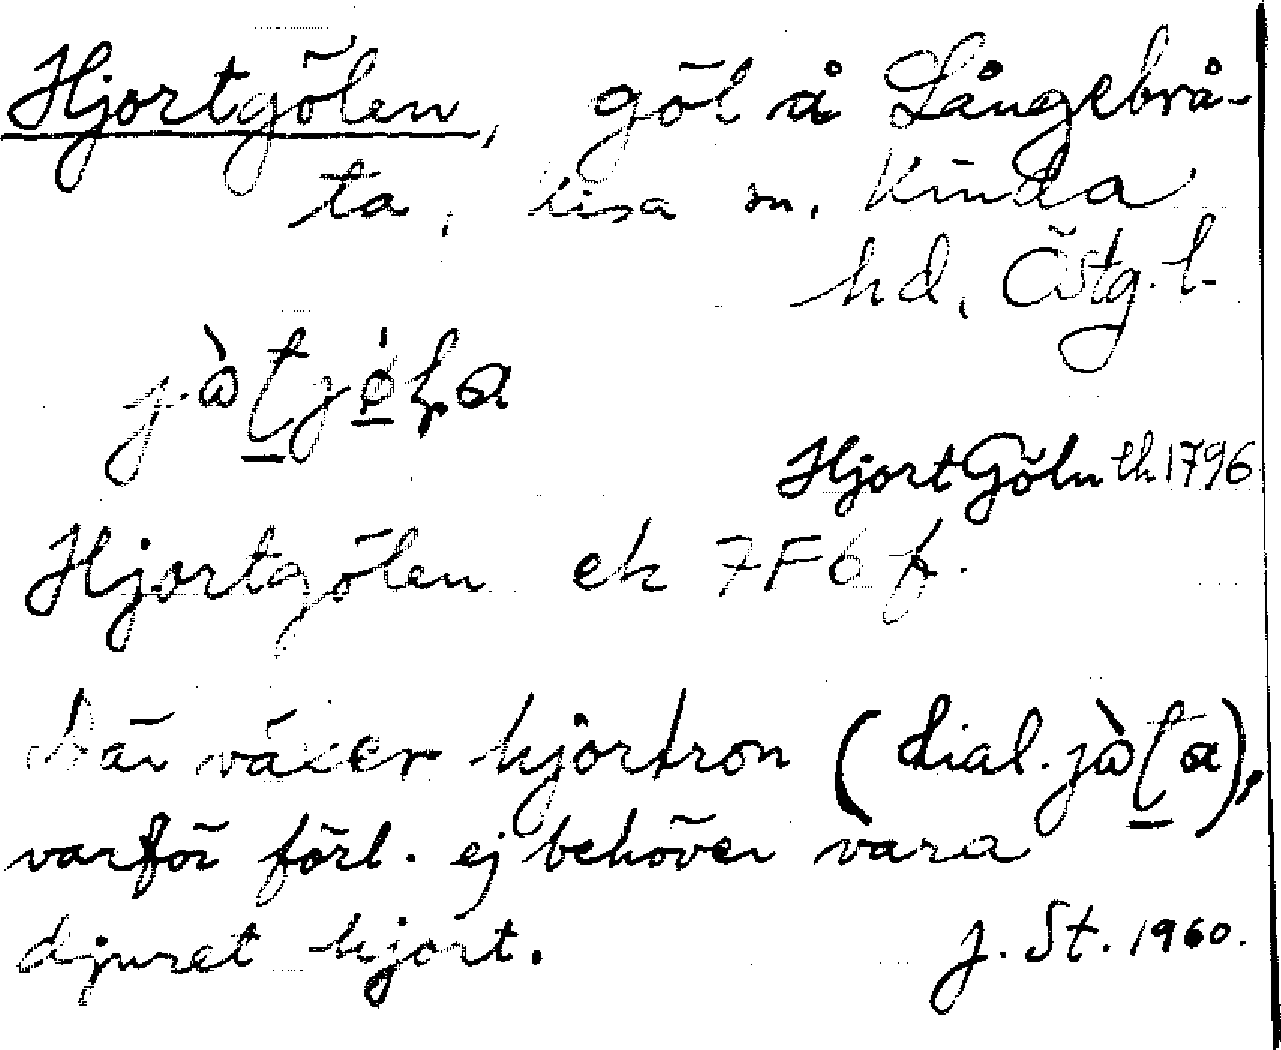 Hjortgölen, göl å Långebrå-
ta, Kisa sn, Kinda
hd, Östg. l.
Hjort Göln ek 1796
Hjortgölen ek 7F6f.
Där växer hjortron (dial.
varför förl. ej behöver vara
djuret hjort. J. St. 1960.